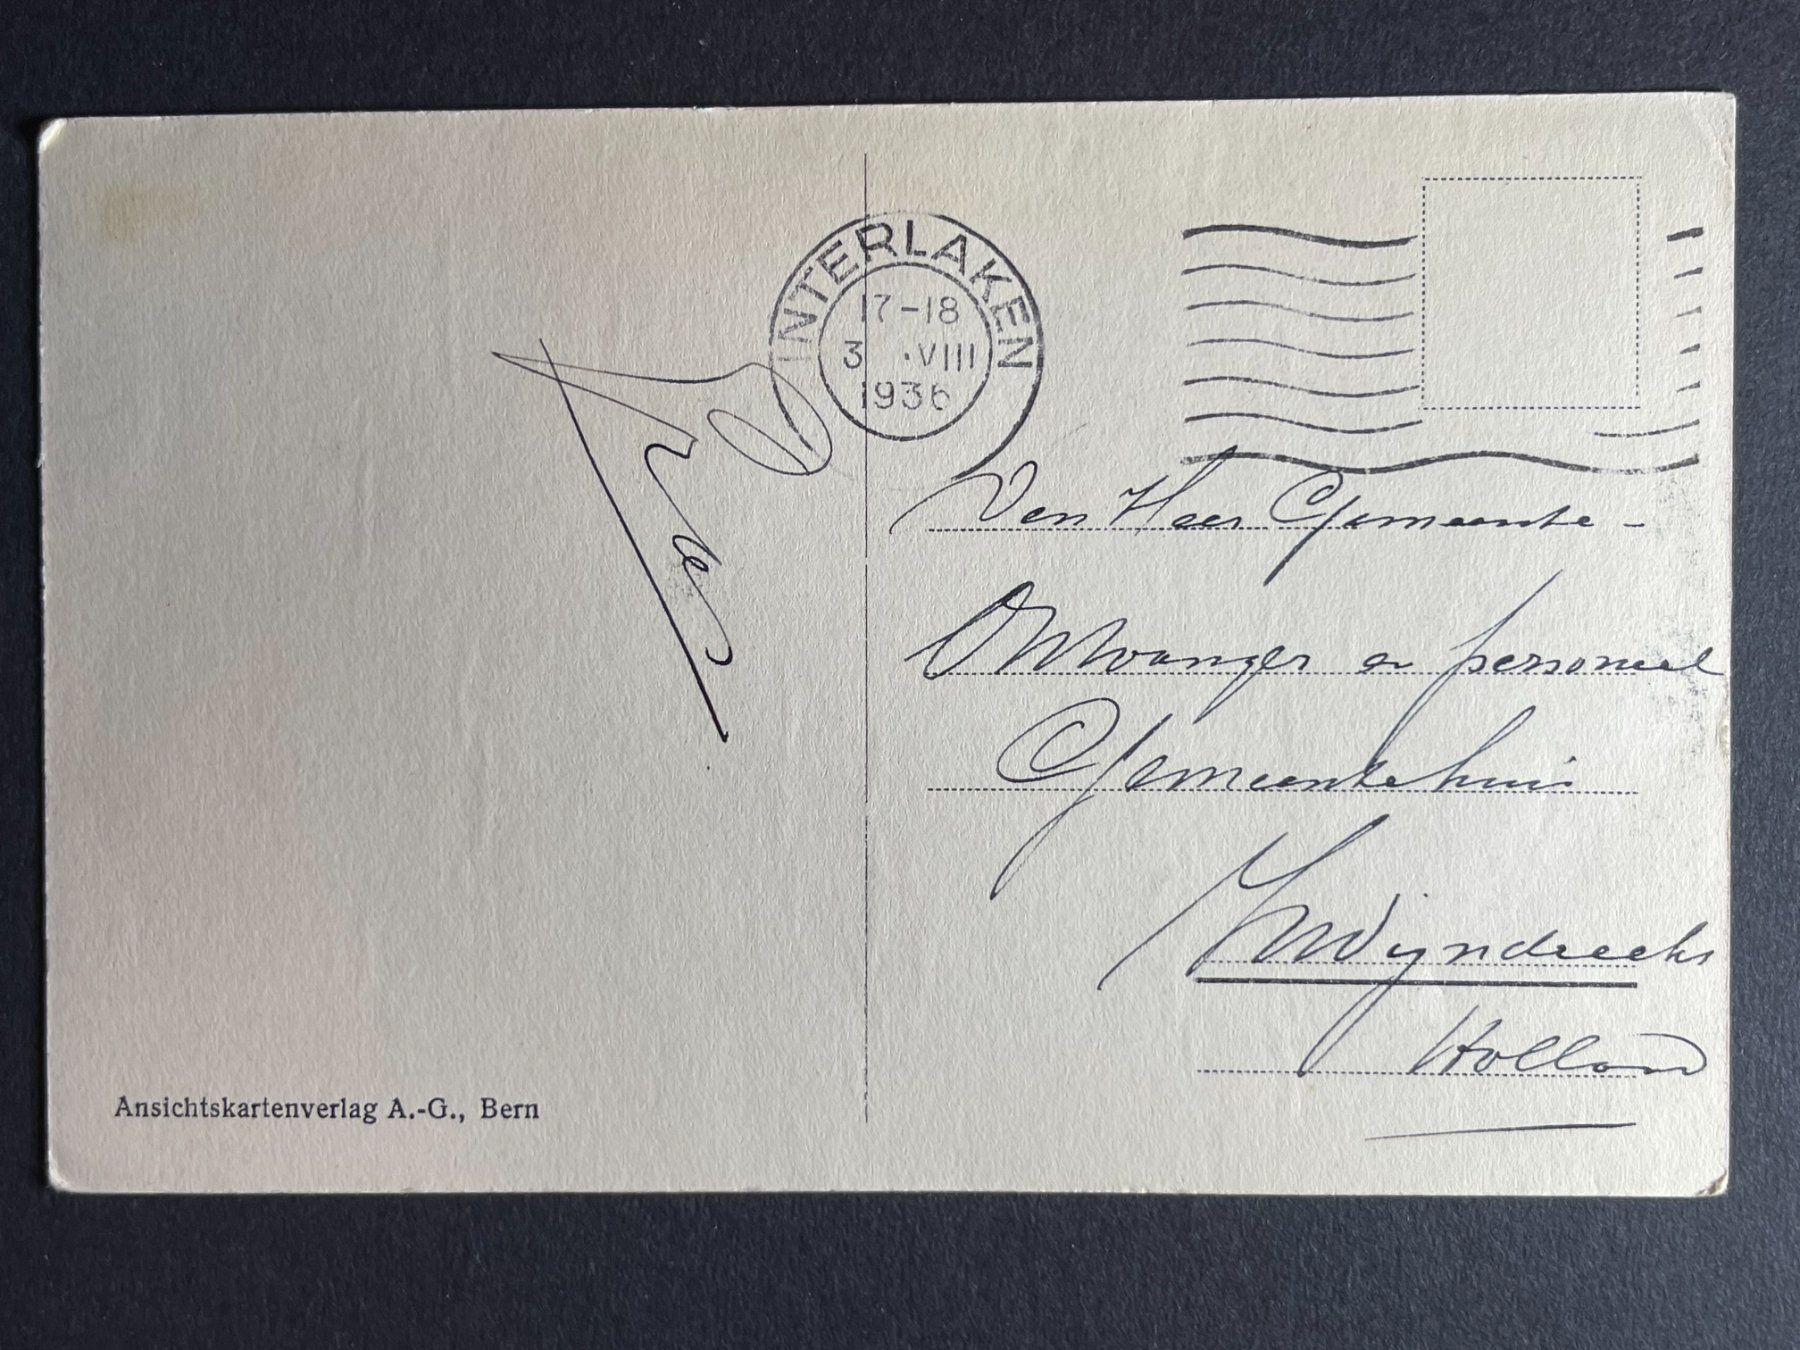 INTERLAKEN
17-18
3 .VIII
1936
Den Heer Gemeente-
Ontvanger en personeel
Gemeentehuis
Zwijndrecht
Holland
Ansichtskartenverlag A.-G., Bern